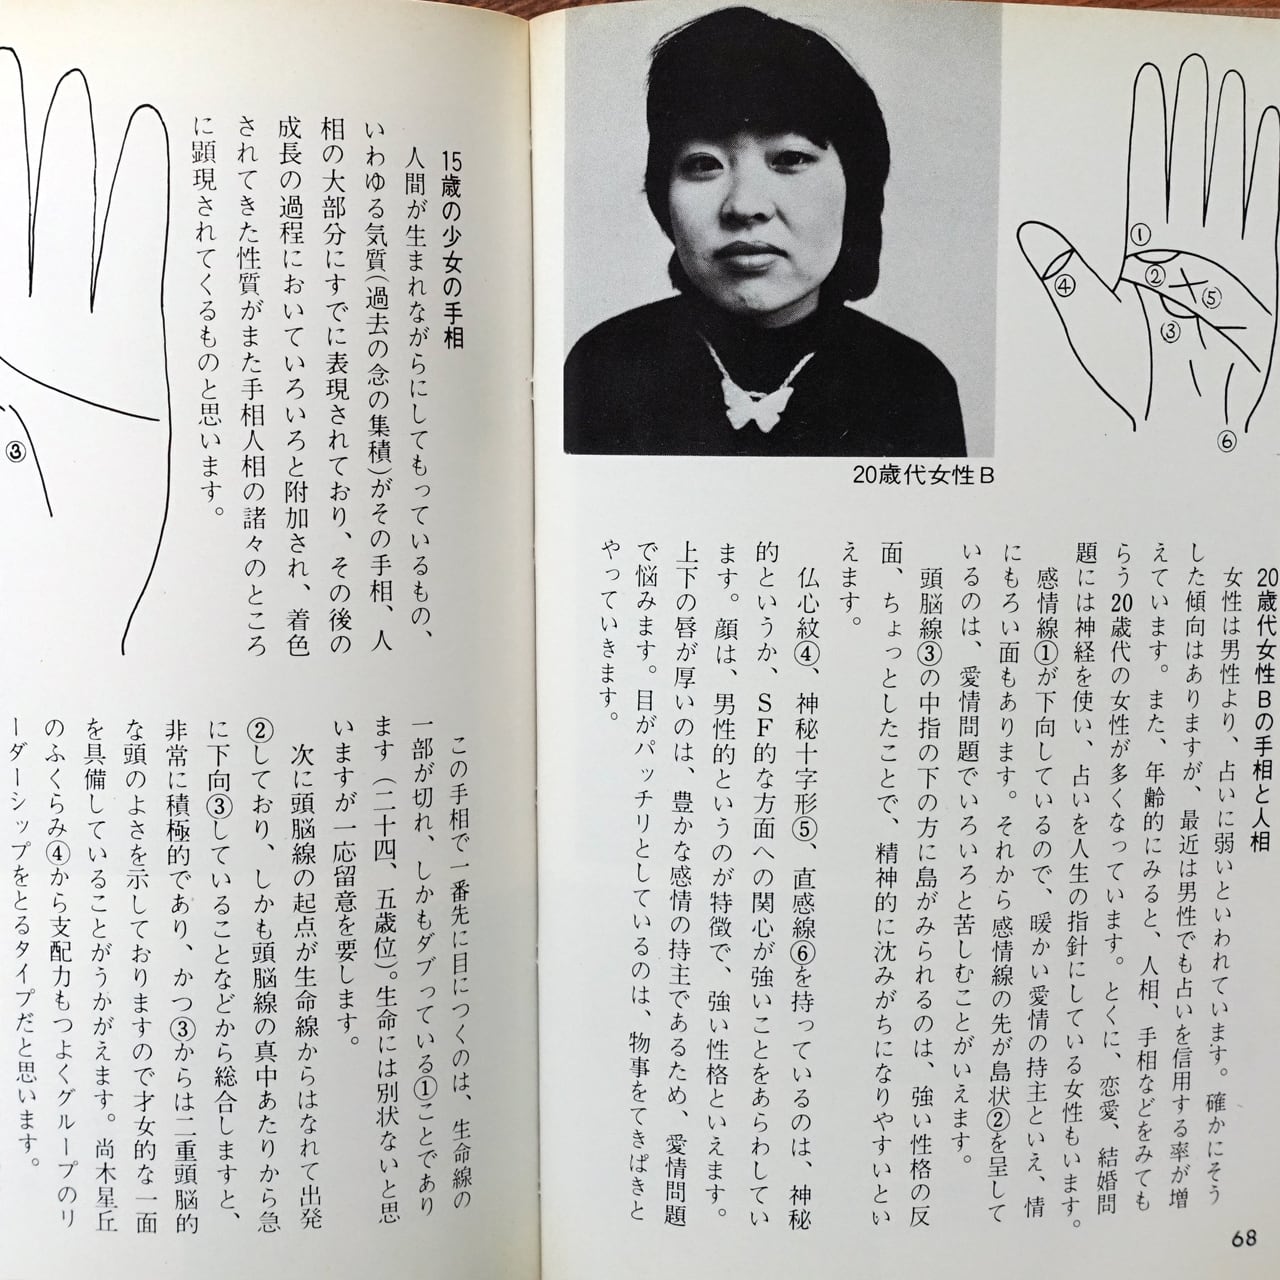 ①
②
③
④
⑤
⑥
20歳代女性B
20歳代女性Bの手相と人相
女性は男性より、占いに弱いといわれています。確かにそう
した傾向はありますが、最近は男性でも占いを信用する率が増
えています。また、年齢的にみると、人相、手相などをみても
らう20歳代の女性が多くなっています。とくに、恋愛、結婚問
題には神経を使い、占いを人生の指針にしている女性もいます。
感情線①が下向しているので、暖かい愛情の持主といえ、情
にもろい面もあります。それから感情線の先が島状②を呈して
いるのは、愛情問題でいろいろと苦しむことがいえます。
頭脳線③の中指の下の方に島がみられるのは、強い性格の反
面、ちょっとしたことで、精神的に沈みがちになりやすいとい
えます。
仏心紋④、神秘十字形⑤、直感線⑥を持っているのは、神秘
的というか、SF的な方面への関心が強いことをあらわしてい
ます。顔は、男性的というのが特徴で、強い性格といえます。
上下の唇が厚いのは、豊かな感情の持主であるため、愛情問題
で悩みます。目がパッチリとしているのは、物事をてきぱきと
やっていきます。
68
15歳の少女の手相
人間が生まれながらにしてもっているもの、
いわゆる気質(過去の念の集積)がその手相、人
相の大部分にすでに表現されており、その後の
成長の過程においていろいろと附加され、着色
されてきた性質がまた手相人相の諸々のところ
に顕現されてくるものと思います。
③
この手相で一番先に目につくのは、生命線の
一部が切れ、しかもダブっている①ことであり
ます(二十四、五歳位)。生命には別状ないと思
いますが一応留意を要します。
次に頭脳線の起点が生命線からはなれて出発
②しており、しかも頭脳線の真中あたりから急
に下向③していることなどから総合しますと、
非常に積極的であり、かつ③からは二重頭脳的
な頭のよさを示しておりますので才女的な一面
を具備していることがうかがえます。尚木星丘
のふくらみ④から支配力もつよくグループのリ
ーダーシップをとるタイプだと思います。